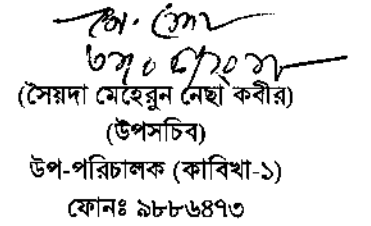 (সৈয়দা মেহেরুন নেছা কবীর)
(উপসচিব)
উপ-পরিচালক (কাবিখা-১)
ফোনঃ ৯৮৮৬৪৭৩